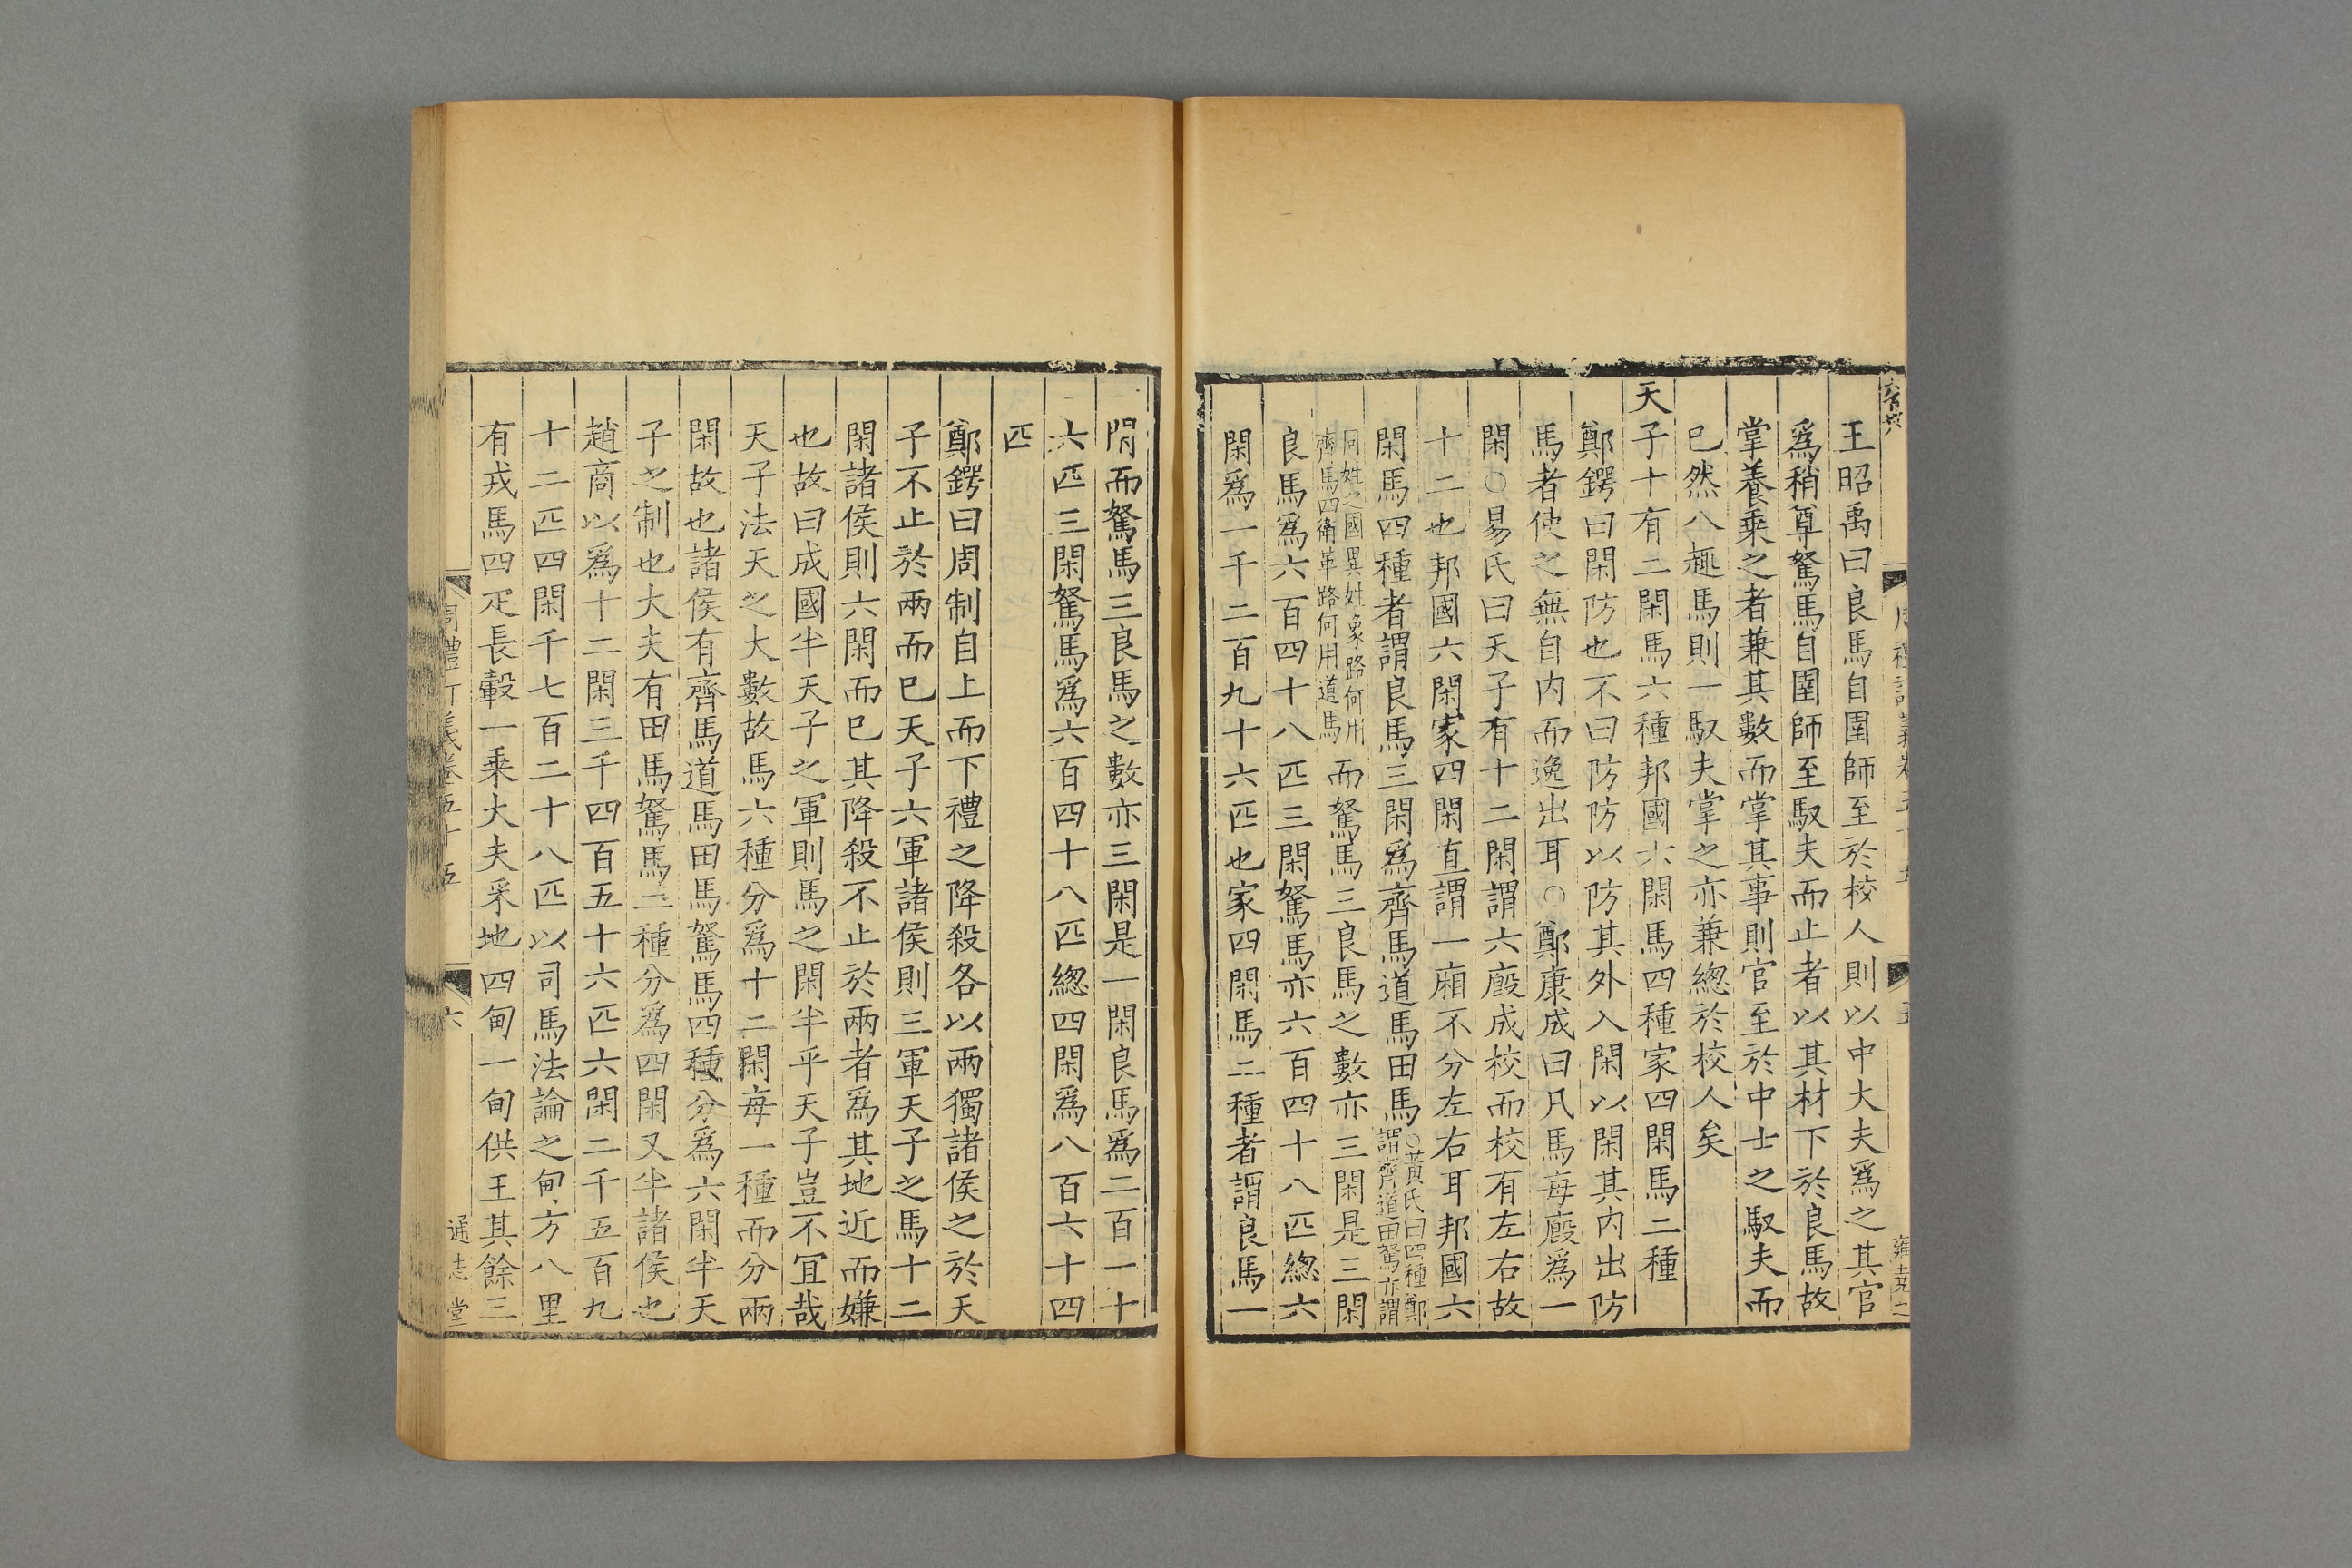 王昭禹曰良馬自圉師至於校人則以中大夫爲之其官
爲稍尊駑馬自圉師至馭夫而止者以其材下於良馬故
掌養乘之者兼其數而掌其事則官至於中士之馭夫而
已然八趣馬則一馭夫掌之亦兼總於校人矣
天子十有二閑馬六種邦國六閑馬四種家四閑馬二種
鄭鍔曰閑防也不曰防防以防其外入閑以閑其内出防
馬者使之無自内而逸出耳○鄭康成曰凡馬每廄爲一
閑○易氏曰天子有十二閑謂六廄成校而校有左右故
十二也邦國六閑家四閑直謂一廂不分左右耳邦國六
閑馬四種者謂良馬三閑爲齊馬道馬田馬○黃氏曰四種鄭
謂齊道田駑亦謂
同姓之國異姓象路何用
齊馬四衛革路何用道馬
而駑馬三良馬之數亦三閑是三閑
良馬爲六百四十八匹三閑駑馬亦六百四十八匹緫六
閑爲一千二百九十六匹也家四閑馬二種者謂良馬一
閑而駑馬三良馬之數亦三閑是一閑良馬爲二百一十
六匹三閑駑馬爲六百四十八匹緫四閑爲八百六十四
匹
鄭鍔曰周制自上而下禮之降殺各以兩獨諸侯之於天
子不止於兩而已天子六軍諸侯則三軍天子之馬十二
閑諸侯則六閑而已其降殺不止於兩者爲其地近而嫌
也故曰成國半天子之軍則馬之閑半乎天子豈不宜哉
天子法天之大數故馬六種分爲十二閑每一種而分兩
閑故也諸侯有齊馬道馬田馬駑馬四種分爲六閑半天
子之制也大夫有田馬駑馬二種分爲四閑又半諸侯也
趙商以爲十二閑三千四百五十六匹六閑二千五百九
十二匹四閑千七百二十八匹以司馬法論之甸方八里
有戎馬四疋長轂一乘大夫采地四甸一甸供王其餘三
周禮訂義卷五十五
六
通志堂